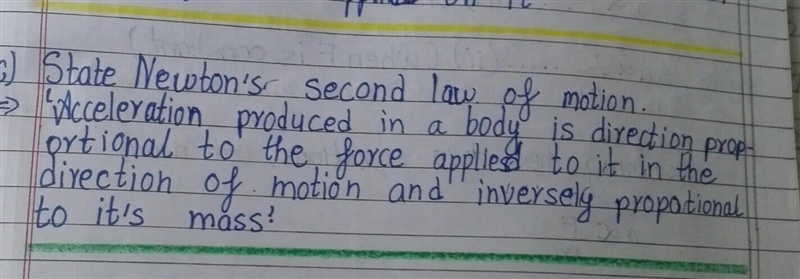 State Newton's second law of motion.
⇒ "Acceleration produced in a body is direction prop-
ortional to the force applied to it in the
direction of motion and inversely propotional
to it's mass!